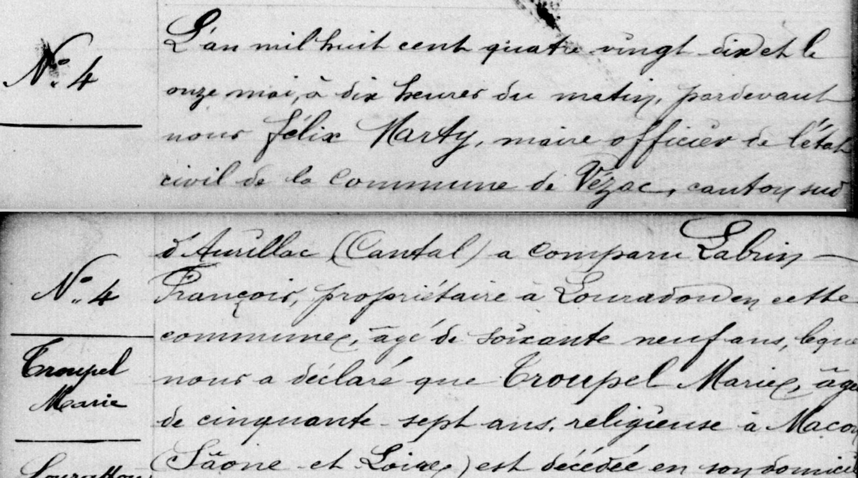 N° 4
L'an mil huit cent quatre vingt dix et le
onze mai, à dix heures du matin, pardevant
nous Félix Marty, maire officier de l'état
civil de la commune de Vézac, canton sud
d'Aurillac (Cantal) a comparu Labrun
N° 4
François, propriétaire à Louradou en cette
commune, âgé de soixante neuf ans, leque
Troupel
Marie
nous a déclaré que Troupel Marie, âgé
de cinquante-sept ans, religieuse à Macon
(Sâone et Loire) est décédée en son domici